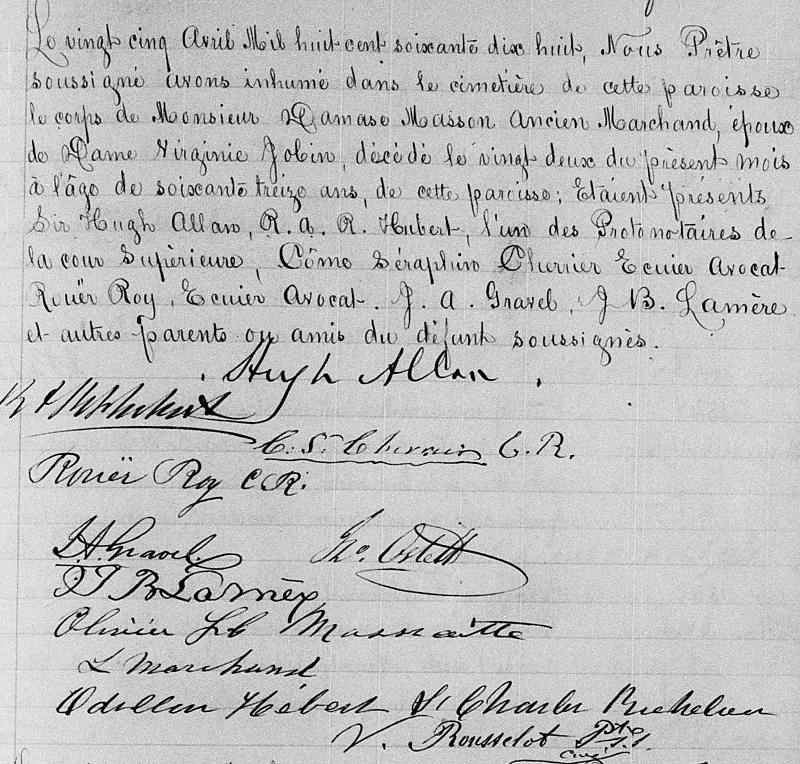 Le vingt cinq Avril Mil huit cent soixante dix huit, Nous Prêtre
soussigné avons inhumé dans le cimetière de cette paroisse
le corps de Monsieur Damase Masson Ancien Marchand, époux
de Dame Virginie Jobin, décédé le vingt deux du présent mois
à l'âge de soixante treize ans, de cette paroisse; Etaient présents
Sir Hugh Allan, R. A. R. Hubert, l'un des Protonotaires de
la cour Supérieure, Côme Séraphin Cherrier Ecuier Avocat
Rouër Roy, Ecuier Avocat. J. A. Gravel, J B. Lamère
et autres parents ou amis du défunt soussignés.
Hugh Allan
R A R Hubert
C. S. Cherrier C. R.
Rouër Roy C.R.
J.A. Gravel
J B Lamère
Olivier
L Marchand
Odillon Hébert St Charles Richelieu
V. Rousselot Ptre
Curé S.S.